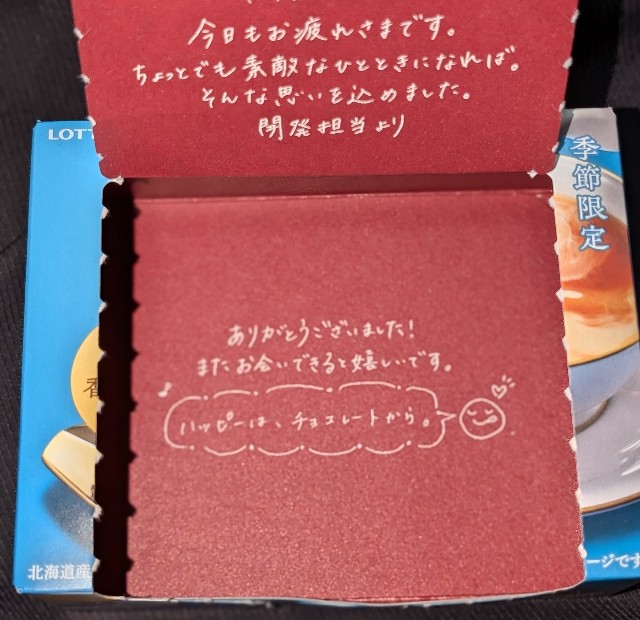 今日もお疲れさまです。
ちょっとでも素敵なひとときになれば。
そんな思いを込めました。
開発担当より
LOTT
季節限定
ありがとうございました!
またお会いできると嬉しいです。
ハッピーは、チョコレートから。
香
北海道産
ージです